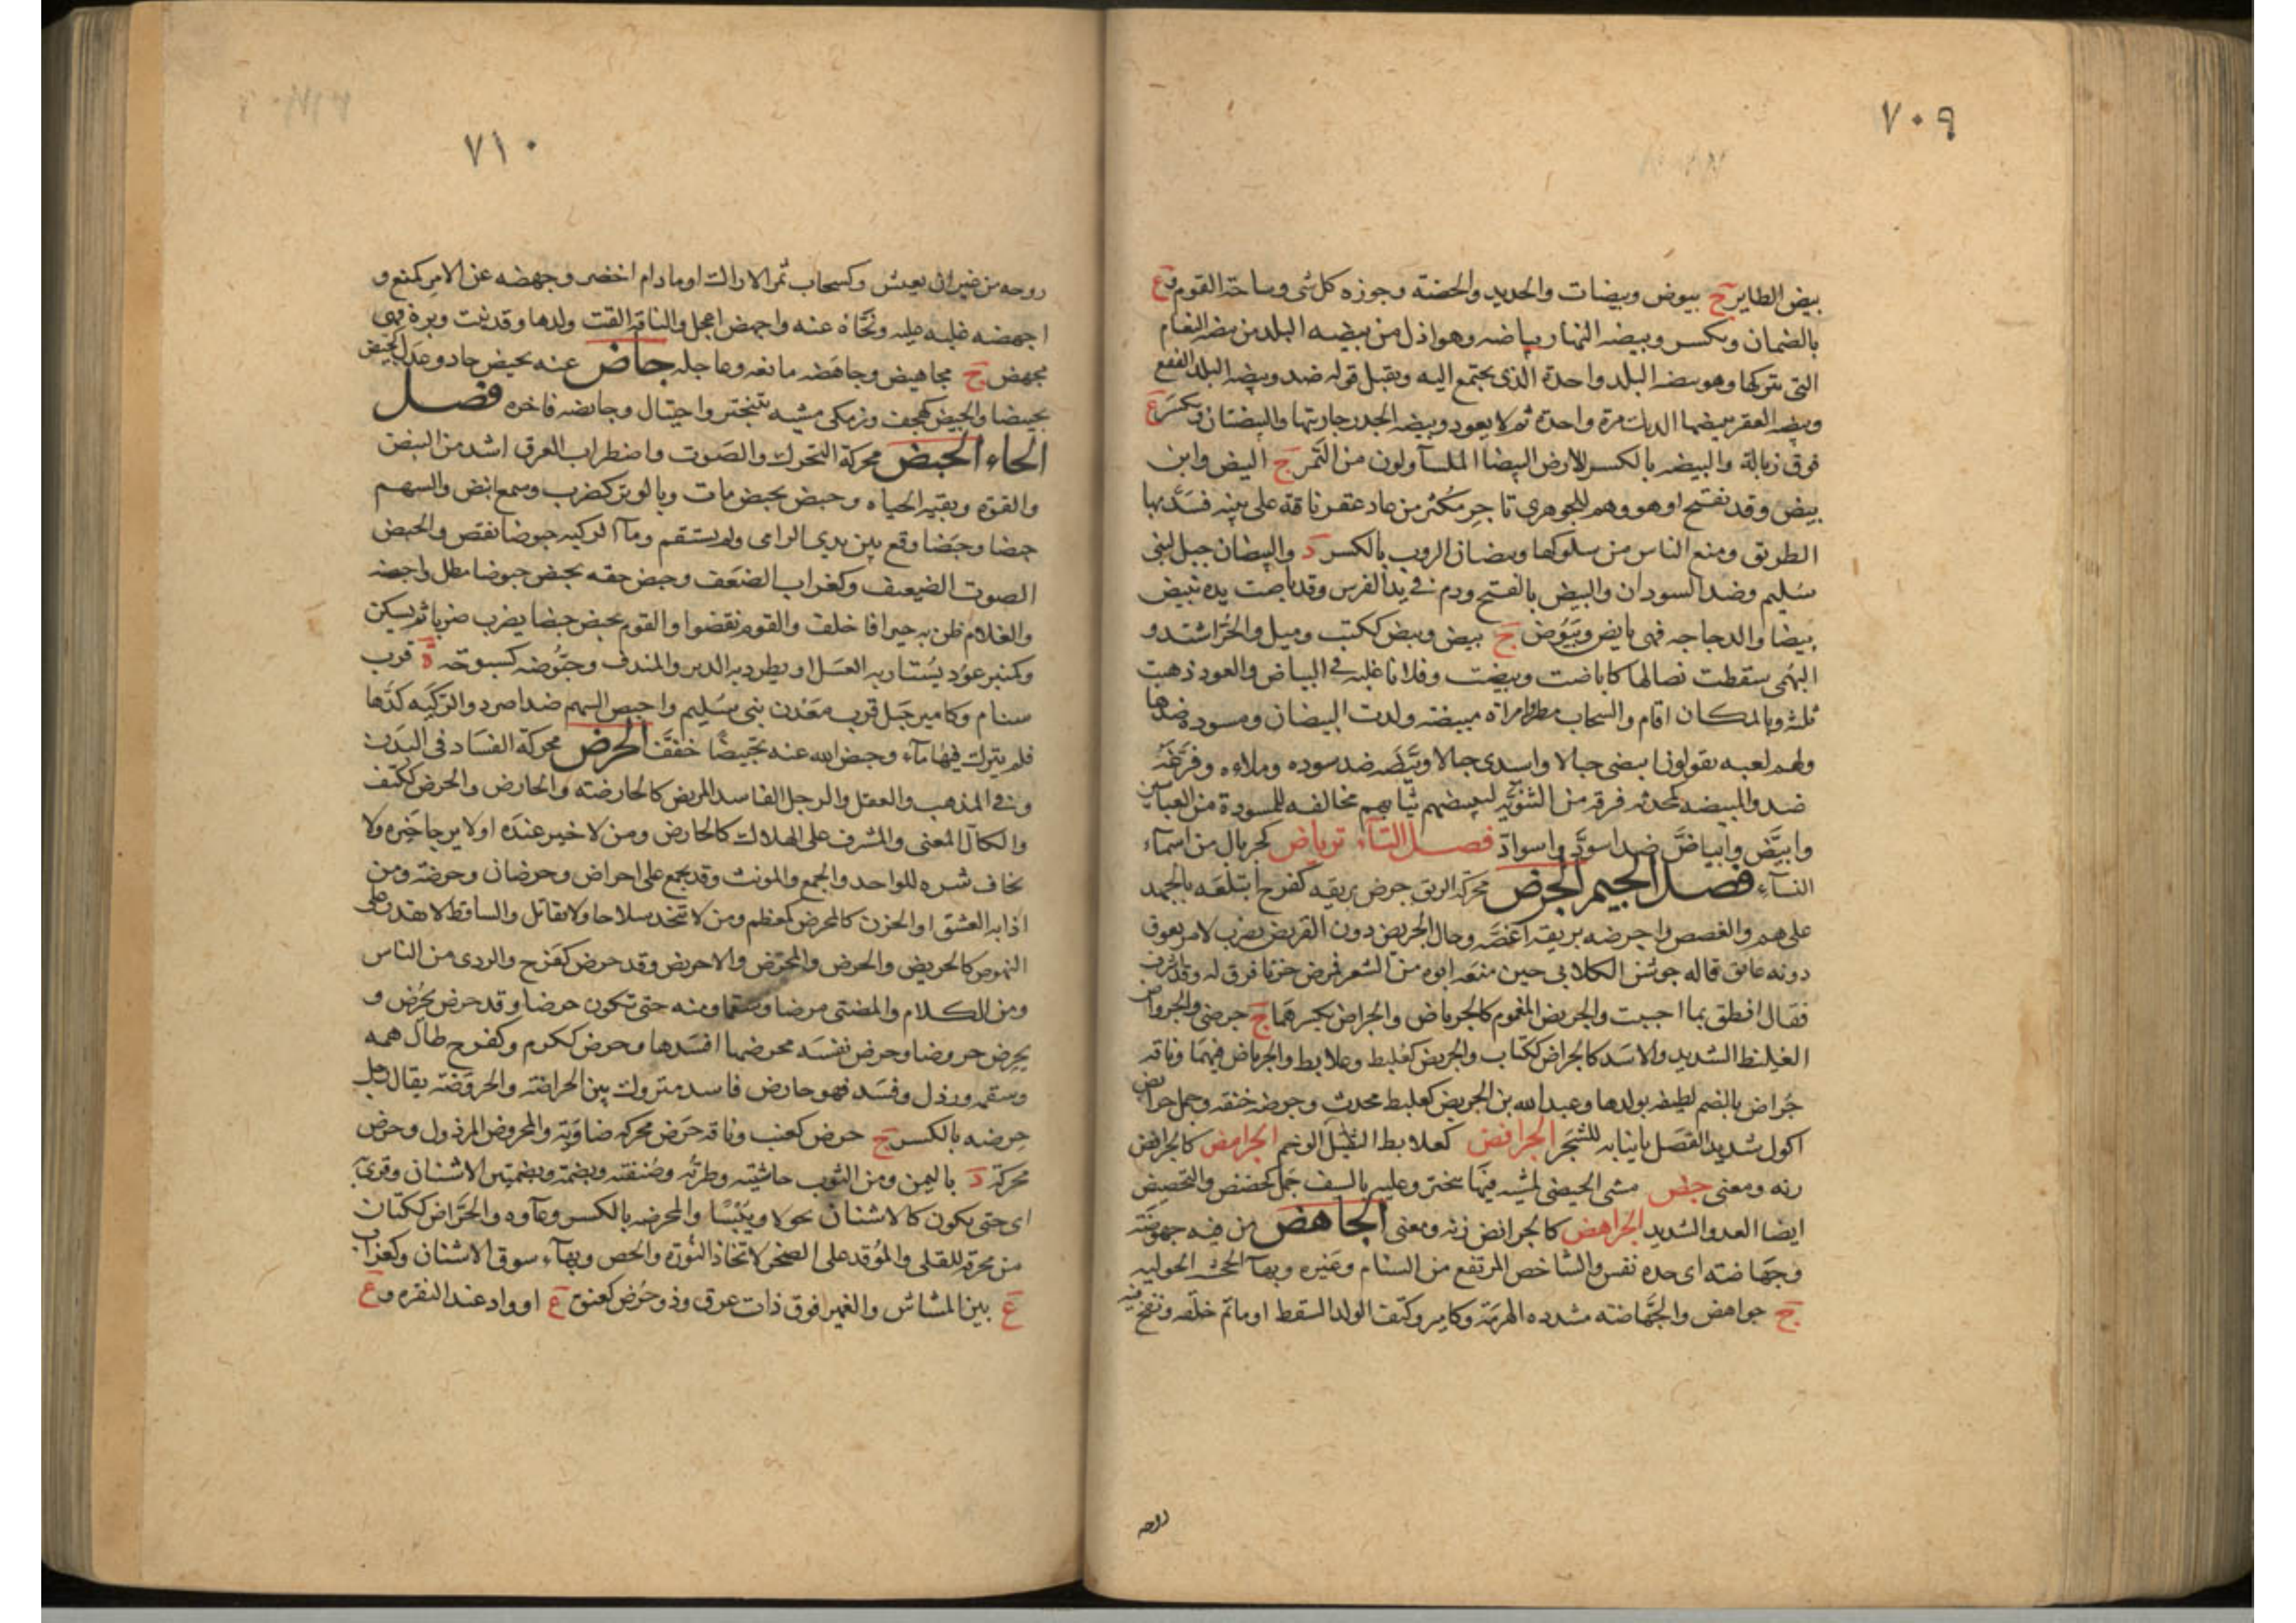 ٧٠٩
بيض الطاير ج بيوض وبيضات والحديد والخصية وحوزه كل شى وساحة القوم و ع
بالضمان ويكسر وبيضه النهار بياضه وهو اذل من بيضه البلد من بيضه النعام
التى تتركها وهو بيضه البلد واحدة الذى يجتمع اليه ويقبل قوله ضد وبيضه البلد الفقع
وبيضه العقر يبيضها الديك مرة واحدة ثم لا يعود وبيضه الخدر جاريتها والبيضتان ويكسر ع
فوق زبالة والبيضه بالكسر للارض البيضا الملسآ ولون من التمر ج البيض وابن
بيض وقد تفتح او هو وهم للجوهرى تاجر مكثر من عاد عقر ناقة على ثنيه فسد بها
الطريق ومنع الناس من سلوكها وبيضان الروب بالكسر د والبيضان جبل لبنى
سليم وضد السودان والبيض بالفتح ودم فى يد الفرس وقد باضت يده تبيض
بيضا والدجاجه فهى بايض وبيوض ج بيض وبيض ككتب وميل والحر اشتد و
البهمى سقطت نصالها كاباضت وبيضت وفلانا غلبه فى البياض والعود ذهبت
بلته وبالمكان اقام والسحاب مطر وامراة مبيضه ولدت البيضان ومسودة ضدها
ولهم لعبه يقولون ابيضى حبالا واسيدى حبالا وبيضه ضد سوده وملاءه وفرغه
ضد والمبيضه كمحدثه فرقه من الثنويه لتبييضهم ثيابهم مخالفه للمسودة من العباسين
وابيض وابياض ضد اسود واسواد فصل التآء ترياض كجريال من اسمآء
النسآء فصل الجيم الجرض محركة الريق جرض بريقه كفرح ابتلعه بالجهد
على هم والغصص واجرضه بريقه اغصه وحال الجريض دون القريض يضرب لامر يعوق
دونه عايق قاله جوشن الكلابى حين منعه ابوه من الشعر فمرض حزنا فرق له وقد اشرف
فقال انطق بما احببت والجريض المغموم كالجرياض والجراض بكسرهما ج جرضى والجرواض
الغليظ الشديد والاسد كالجراض ككتاب والجرئض كعلبط وعلابط والجرياض فيهما وناقه
جراض بالضم لطيفه بولدها وعبدالله بن الجريض كعلبط محدث وجرضه خنقه وجمل جرائض
اكول شديد القصل بانيابه للشجر الجرافض كعلابط الثقيل الوخم الجرامض كالجرافض
زنه ومعنى جض مشى الجيضى لمشيه فيها تبختر وعليه بالسيف حمل كجضض والتجضيض
ايضا العدو الشديد الجراهض كالجرائض زنه ومعنى الجاهض من فيه جهوضة
وجهاضته اى حده نفس والشاخص المرتفع من السنام وغيره وبهآ الجحشه الحوليه
ج جواهض والجهاضته مشدده الهرمة وكامير وكتف الولد السقط او ما تم خلقه ونفخ فيه
روحه
٧١٠
روحه من غير ان يعيش وكسحاب ثمر الاراك او ما دام اخضر وجهضه عن الامر كمنع و
اجهضه غلبه عليه ونحاه عنه واجهض اعجل والناقة القت ولدها وقد نبت وبره فهى
مجهض ج مجاهيض وجاهضه مانعه وعاجله جاض عنه يجيض حاد وعدل كجيض
تجييضا والجيض كهجف وزمكى مشيه بتبختر واختيال وجايضه فاخره فصل
الحاء الحبض محركة التحرك والصوت واضطراب العرق اشد من النبض
والقوة وبقيه الحياه وحبض يحبض مات وبالوتر كضرب وسمع انبض والسهم
حبضا وحبضا وقع بين يدى الرامى ولم يستقم ومآ الركيه حبوضا نقص والحبض
الصوت الضيعيف وكغراب الضعف وحبض حقه يحبض حبوضا بطل واحبضه
والغلام ظن به خيرا فاخلف والقوم نقضوا والقوم يحبض حبضا يضرب ضربا ثم يسكن
وكمنبر عود يشتار به العسل او يطرد به الدبر والمندف وحبوضه كسبوحه ة قرب
سنام وكامير جبل قرب معدن بنى سليم واحبض السهم ضد اصرد والركيه كدها
فلم يترك فيها مآء وحبض الله عنه تحبيضا خفف الحرض محركة الفساد فى البدن
وفى المذهب والعقل والرجل الفاسد المريض كالحارضته والحارض والحرض ككتف
والكال المعنى والمشرف على الهلاك كالحارض ومن لا خير عنده او لا يرجا خيره ولا
يخاف شره للواحد والجمع والمونث وقد يجمع على احراض وحرضان وحرضه ومن
اذابه العشق او الحزن كالمحرض كمعظم ومن لا يتخذ سلاحا ولا يقاتل والساقط لا يقدر على
النهوض كالحريض والحرض والمحرض والاحريض وقد حرض كفرح والردى من الناس
ومن الكلام والمضنى مرضا وسقما ومنه حتى تكون حرضا وقد حرض يحرض و
يحرض حروضا وحرض نفسه محرضها افسدها وحرض ككرم وكفرح طال همه
وسقمه ورذل وفسد فهو حارض فاسد متروك بين الحراضته والحروضته يقال رجل
حرضه بالكسر ج حرض كعنب وناقه حرض محركه ضاويه والمحروض المرذول وحرض
محركة د باليمن ومن الثوب حاشيته وطرته وصنفته وبضمته وبضمتين الاشنان وقرى
اى حتى يكون كالاشنان نحولا ويبسا والمحرضه بالكسر وعآوه والحراض ككتان
من محرقه للقلى والموقد على الصخر لاتخاذ النورة والجص وبهآء سوق الاشنان وكغراب
ع بين المشاش والغمير فوق ذات عرق وذو حرض كعنق ع او واد عند النقره و ع